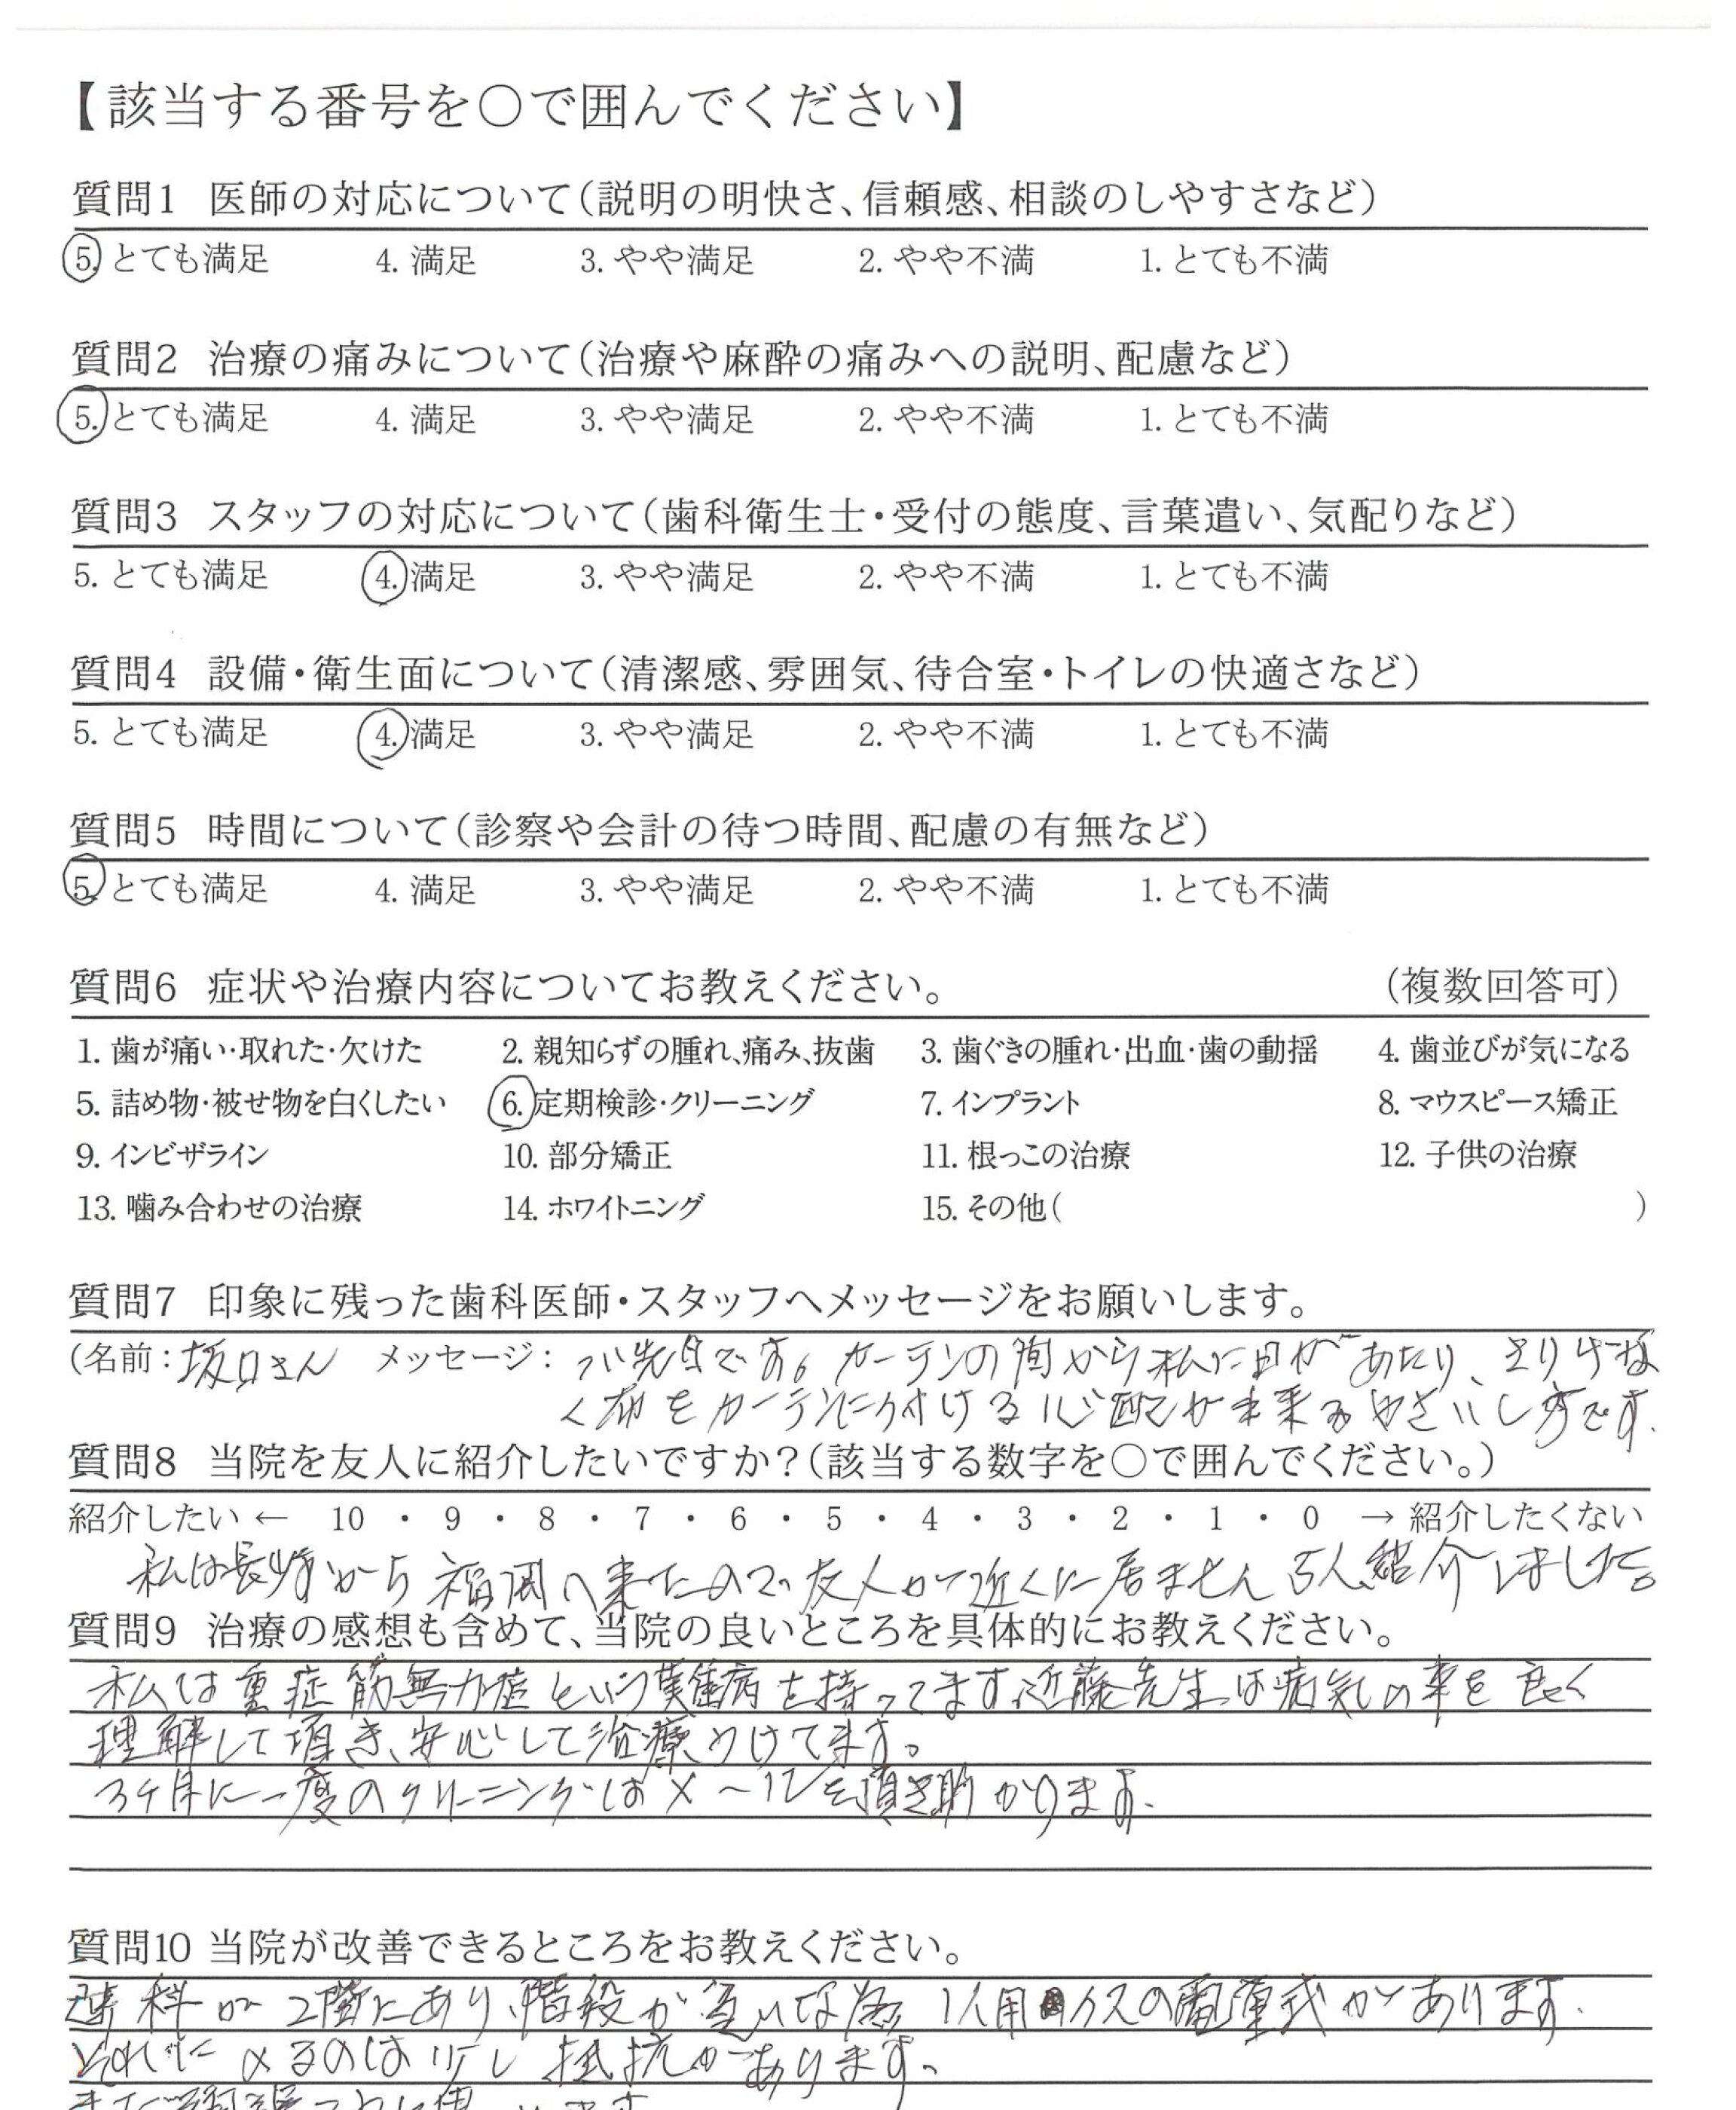 【該当する番号を○で囲んでください】
質問1 医師の対応について(説明の明快さ、信頼感、相談のしやすさなど)
5. とても満足 4. 満足 3. やや満足 2. やや不満 1. とても不満
質問2 治療の痛みについて(治療や麻酔の痛みへの説明、配慮など)
5. とても満足 4. 満足 3. やや満足 2. やや不満 1. とても不満
質問3 スタッフの対応について(歯科衛生士・受付の態度、言葉遣い、気配りなど)
5. とても満足 4. 満足 3. やや満足 2. やや不満 1. とても不満
質問4 設備・衛生面について(清潔感、雰囲気、待合室・トイレの快適さなど)
5. とても満足 4. 満足 3. やや満足 2. やや不満 1. とても不満
質問5 時間について(診察や会計の待つ時間、配慮の有無など)
5. とても満足 4. 満足 3. やや満足 2. やや不満 1. とても不満
質問6 症状や治療内容についてお教えください。 (複数回答可)
1. 歯が痛い・取れた・欠けた 2. 親知らずの腫れ、痛み、抜歯 3. 歯ぐきの腫れ・出血・歯の動揺 4. 歯並びが気になる
5. 詰め物・被せ物を白くしたい 6. 定期検診・クリーニング 7. インプラント 8. マウスピース矯正
9. インビザライン 10. 部分矯正 11. 根っこの治療 12. 子供の治療
13. 噛み合わせの治療 14. ホワイトニング 15. その他( )
質問7 印象に残った歯科医師・スタッフへメッセージをお願いします。
(名前:坂口さん メッセージ: つい先日です。カーテンの間から私に日があたり、さりげな
く布をカーテンに付ける心配が出来るやさいし方です.
質問8 当院を友人に紹介したいですか?(該当する数字を○で囲んでください。)
紹介したい ← 10 ・ 9 ・ 8 ・ 7 ・ 6 ・ 5 ・ 4 ・ 3 ・ 2 ・ 1 ・ 0 → 紹介したくない
私は長崎から福岡へ来たので友人が近くに居ません 5人紹介しました。
質問9 治療の感想も含めて、当院の良いところを具体的にお教えください。
私は重症筋無力症という難病を持ってます。近藤先生は病気の事を良く
理解して頂き、安心して治療うけてます。
3ヶ月に一度のクリーニングはメールを頂き助かります.
質問10 当院が改善できるところをお教えください。
歯科が2階にあり、階段が急いな為 1人用イスの電動式があります.
それにのるのは少し抵抗があります。